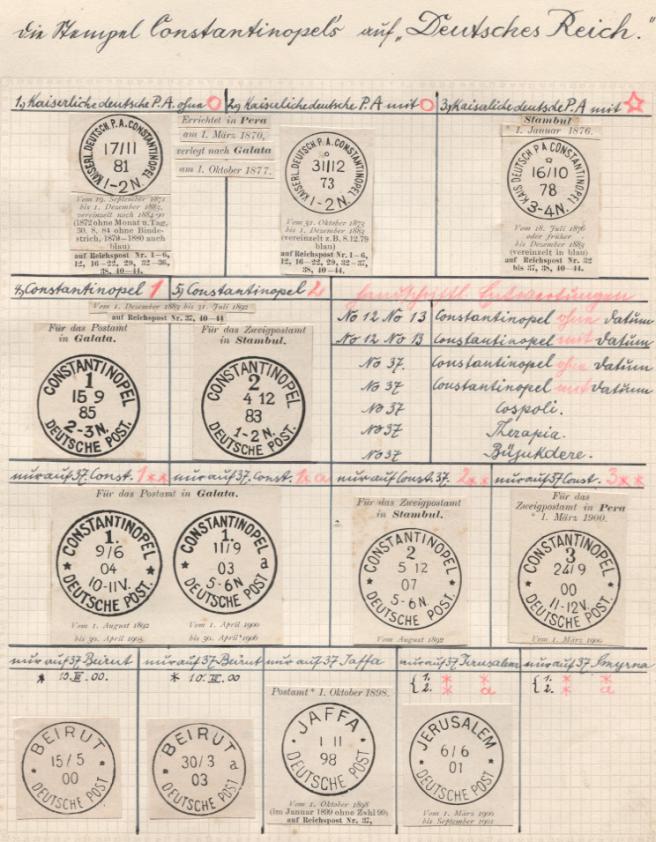 Die Stempel Constantinopel's auf "Deutsches Reich."
1, Kaiserliche deutsche P.A. ohne O
2, Kaiserliche deutsche P.A mit O
3, Kaiserliche deutsche P.A mit ☆
KAISERL. DEUTSCH. P. A. CONSTANTINOPEL
17/II
81
1-2N.
Vom 19. September 1871
bis 1. Dezember 1883,
vereinzelt noch 1884-90
(1872 ohne Monat u. Tag,
30. 8. 84 ohne Binde-
strich, 1879-1880 auch
blau)
auf Reichspost Nr. 1-6,
12, 16-22, 29, 32-36,
38, 40-44.
Errichtet in Pera
am 1. März 1870,
verlegt nach Galata
am 1. Oktober 1877.
KAISERL. DEUTSCH. P. A. CONSTANTINOPEL
31/12
73
1-2N.
Vom 31. Oktober 1872
bis 1. Dezember 1883
(vereinzelt z.B. 8.12.79
in blau)
auf Reichspost Nr. 1-6,
12, 16-22, 29, 32-37,
38, 40-44.
Stambul
* 1. Januar 1876.
KAIS. DEUTSCH. P. A. CONSTANTINOPEL
16/10
78
3-4N.
Vom 18. Juli 1876
oder früher
bis Dezember 1883
(vereinzelt in blau)
auf Reichspost Nr. 32
bis 37, 38, 40-44.
4, Constantinopel 1
5, Constantinopel 2
Handschriftl. Entwertungen
Vom 1. Dezember 1883 bis 31. Juli 1892
auf Reichspost Nr. 37, 40-44
Für das Postamt
in Galata.
CONSTANTINOPEL
1
15 9
85
2-3N.
DEUTSCHE POST.
Für das Zweigpostamt
in Stambul.
CONSTANTINOPEL
2
4 12
83
1-2N.
DEUTSCHE POST.
No 12 No 13 Constantinopel ohne Datum
No 12 No 13 Constantinopel mit Datum
No 37. Constantinopel ohne Datum
No 37 Constantinopel mit Datum
No 37 Cospoli.
No 37 Therapia.
No 37 Büjukdere.
nur auf 37. Const. 1 * *
nur auf 37. Const. 1 * a
nur auf Const. 37. 2 * *
nur auf 37 Const. 3 * *
Für das Postamt in Galata.
CONSTANTINOPEL
1.
9/6
04
10-11V.
* DEUTSCHE POST. *
Vom 1. August 1892
bis 30. April 1905
CONSTANTINOPEL
1.
11/9
03 a
5-6N
* DEUTSCHE POST
Vom 1. April 1900
bis 30. April 1906
Für das Zweigpostamt
in Stambul.
CONSTANTINOPEL
2
5 12
07
5-6N.
* DEUTSCHE POST *
Vom August 1892
Für das
Zweigpostamt in Pera
* 1. März 1900.
CONSTANTINOPEL
3
24/9
00
11-12V.
* DEUTSCHE POST *
Vom 1. März 1900
nur auf 37 Beirut
nur auf 37. Beirut
nur auf 37 Jaffa
nur auf 37. Jerusalem
nur auf 37 Smyrna
{1. * *
2. * a
{1. * *
2. * a
BEIRUT
15/5
00
* DEUTSCHE POST *
BEIRUT
30/3 a
03
* DEUTSCHE POST
Postamt * 1. Oktober 1898.
JAFFA
1 11
98
* DEUTSCHE POST *
Vom 1. Oktober 1898
(im Januar 1899 ohne Zahl 99)
auf Reichspost Nr. 37,
JERUSALEM
6/6
01
* DEUTSCHE POST *
Vom 1. März 1900
bis September 1901